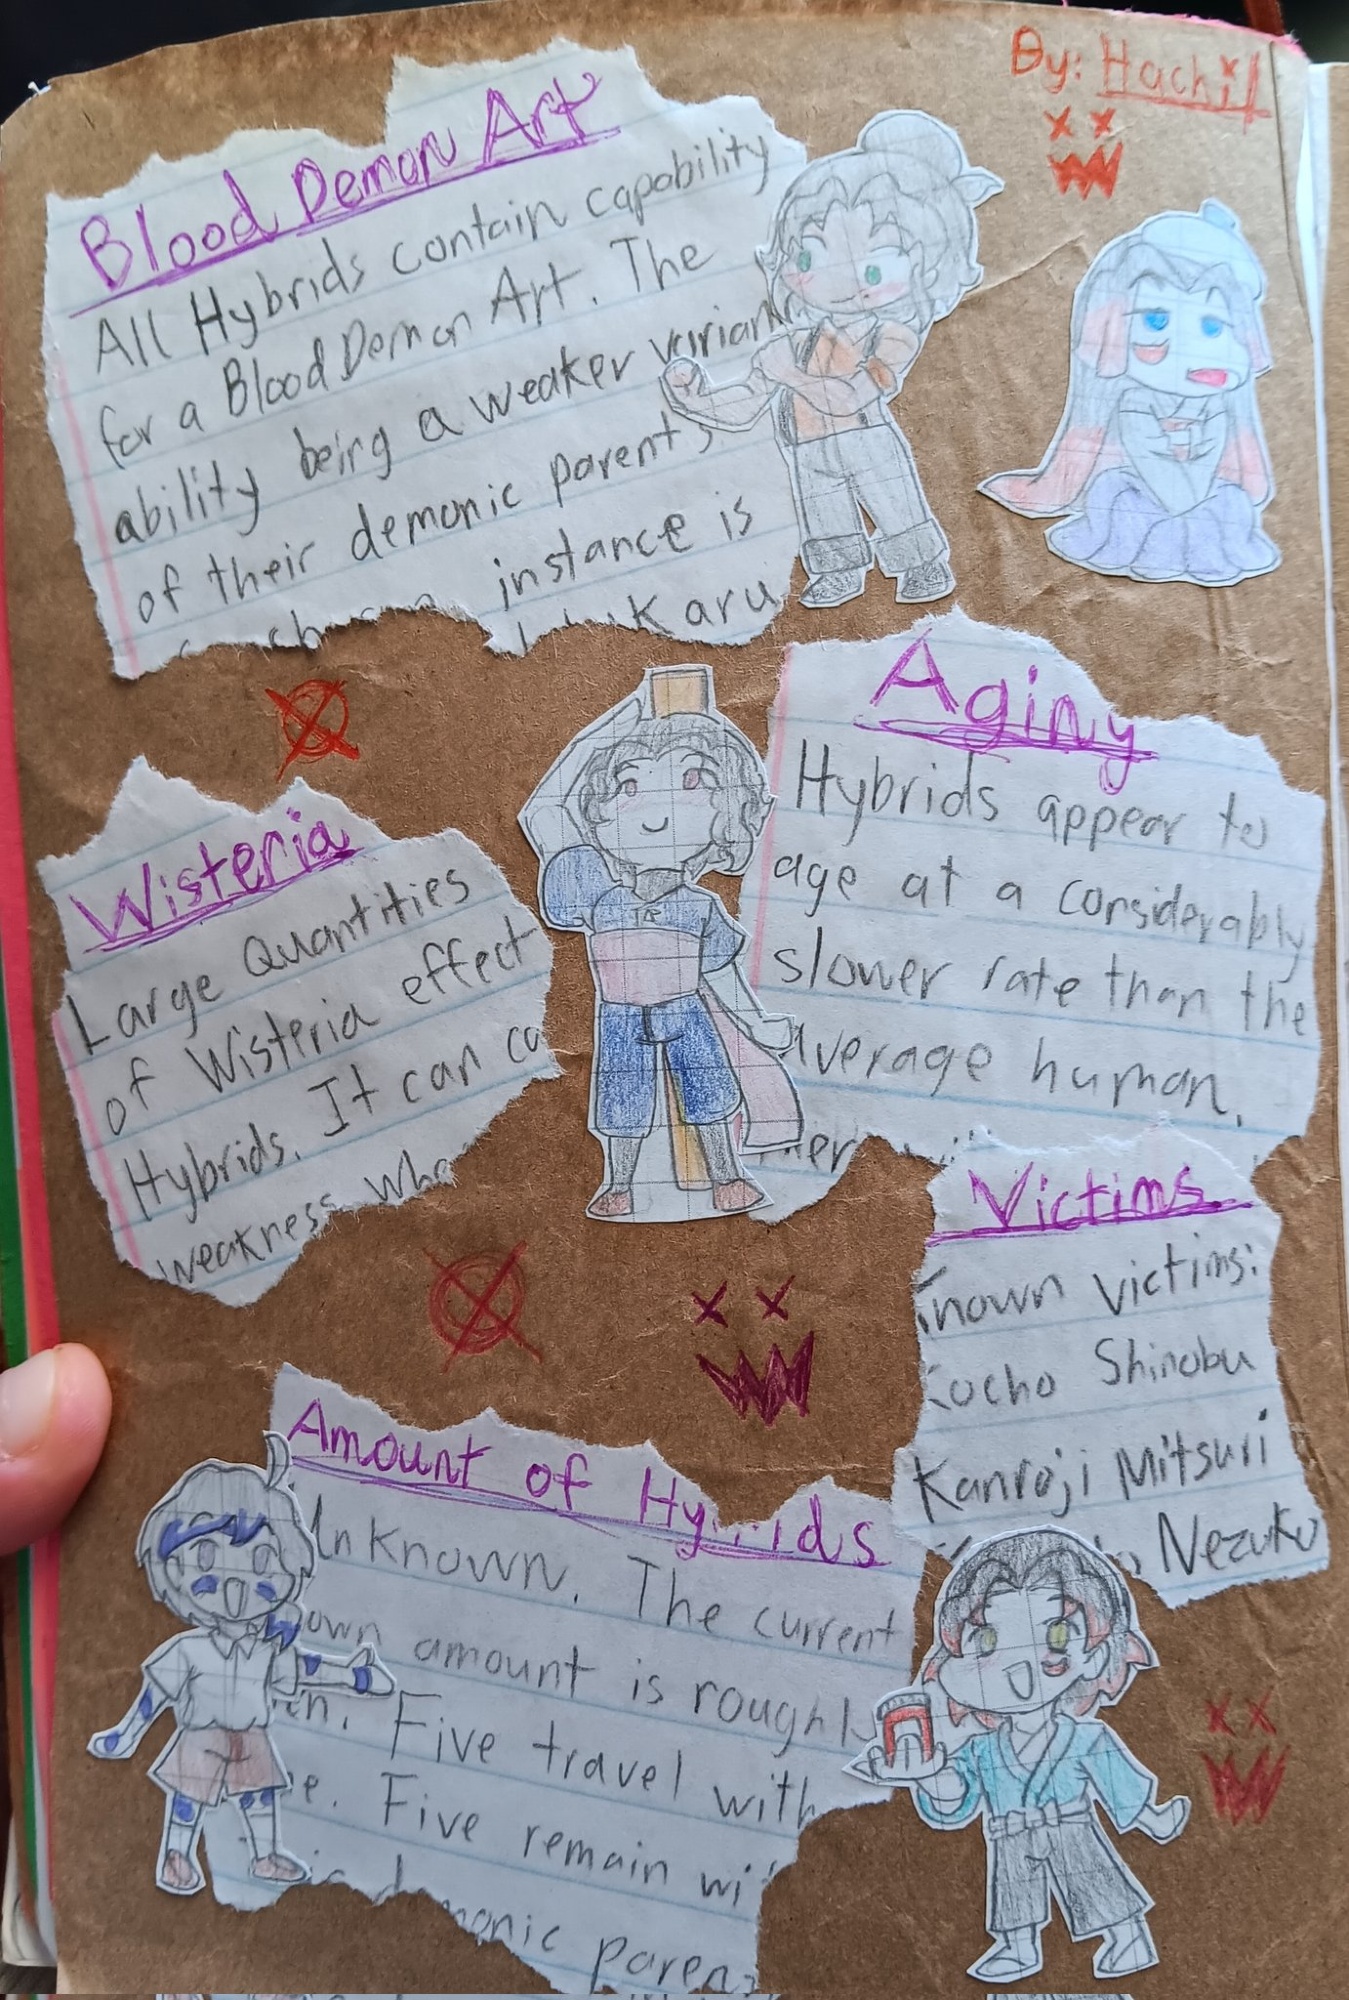 By: Hachi
Blood Demon Art
All Hybrids contain capability
for a Blood Demon Art. The
ability being a weaker variant
of their demonic parent's
instance is
Karu
Aging
Hybrids appear to
age at a considerably
slower rate than the
average human.
Wisteria
Large Quantities
of Wisteria effect
Hybrids. It can ca
weakness whe
Victims
Known victims:
Kocho Shinobu
Kanroji Mitsuri
Nezuko
Amount of Hybrids
Unknown. The current
known amount is roughly
Five travel with
Five remain wi
demonic paren